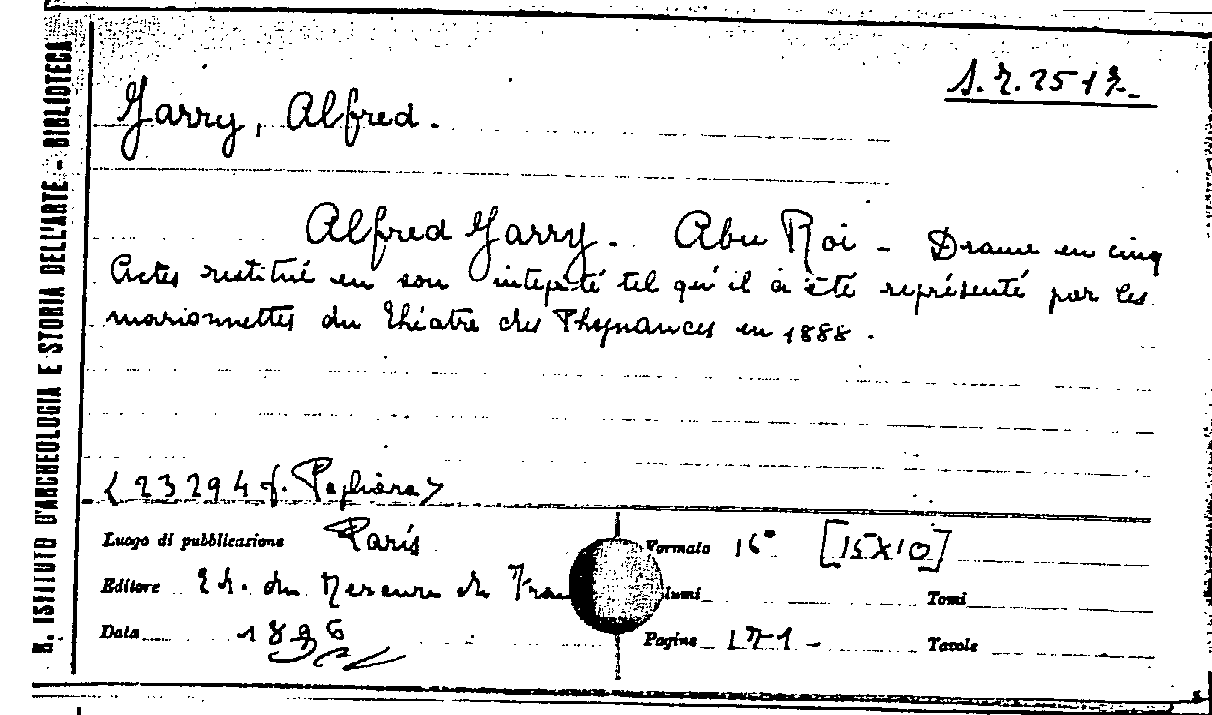 R. ISTITUTO D'ARCHEOLOGIA E STORIA DELL'ARTE - BIBLIOTECA
Jarry, Alfred.
Alfred Jarry. Abu Roi - Drame en cinq
Actes restitué en son intepité tel qu'il a été représenté par les
marionnettes du théatre des Phynances en 1888.
<23294 f. Pagliara>
Luogo di pubblicazione Paris
Formato 16° [15X10]
Editore Ed. du Mercure de
Tomi
Data 1896
Pagine 171 -
Tavole